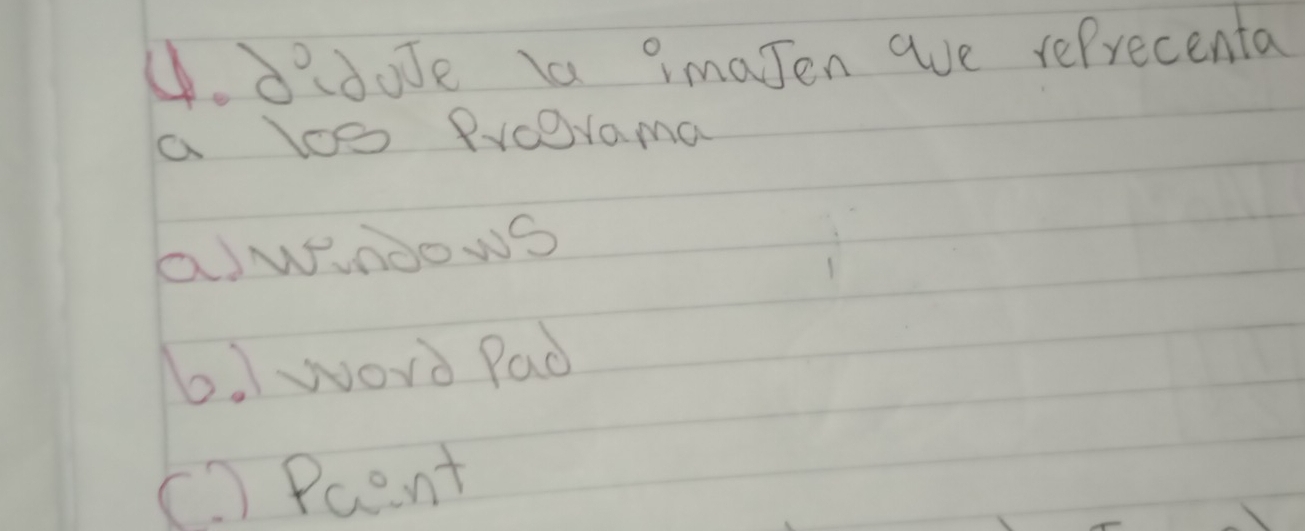 4. diduje la imajen que reprecenta
a los Programa
a) windows
b.) word Pad
c.) Paint